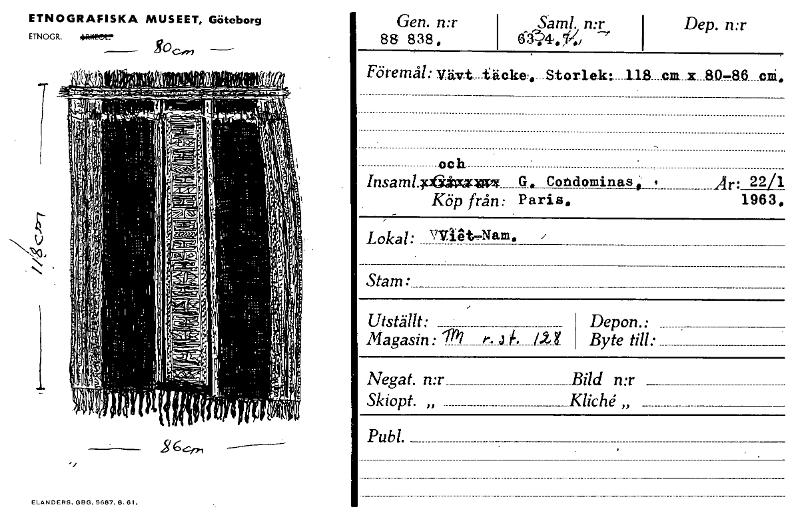 ETNOGRAFISKA MUSEET, Göteborg
ETNOGR. ARKEOL.
80cm
118cm
86cm
ELANDERS, GBG, 5687, 8. 61.
Gen. n:r Saml. n:r Dep. n:r
88 838. 63.4.
Föremål: Vävt täcke. Storlek: 118 cm x 80-86 cm.
och
Insaml. G. Condominas. År: 22/1
Köp från: Paris. 1963.
Lokal: Viêt-Nam.
Stam:
Utställt: Depon.:
Magasin: TM r.st. 128 Byte till:
Negat. n:r Bild n:r
Skiopt. „ Kliché „
Publ.